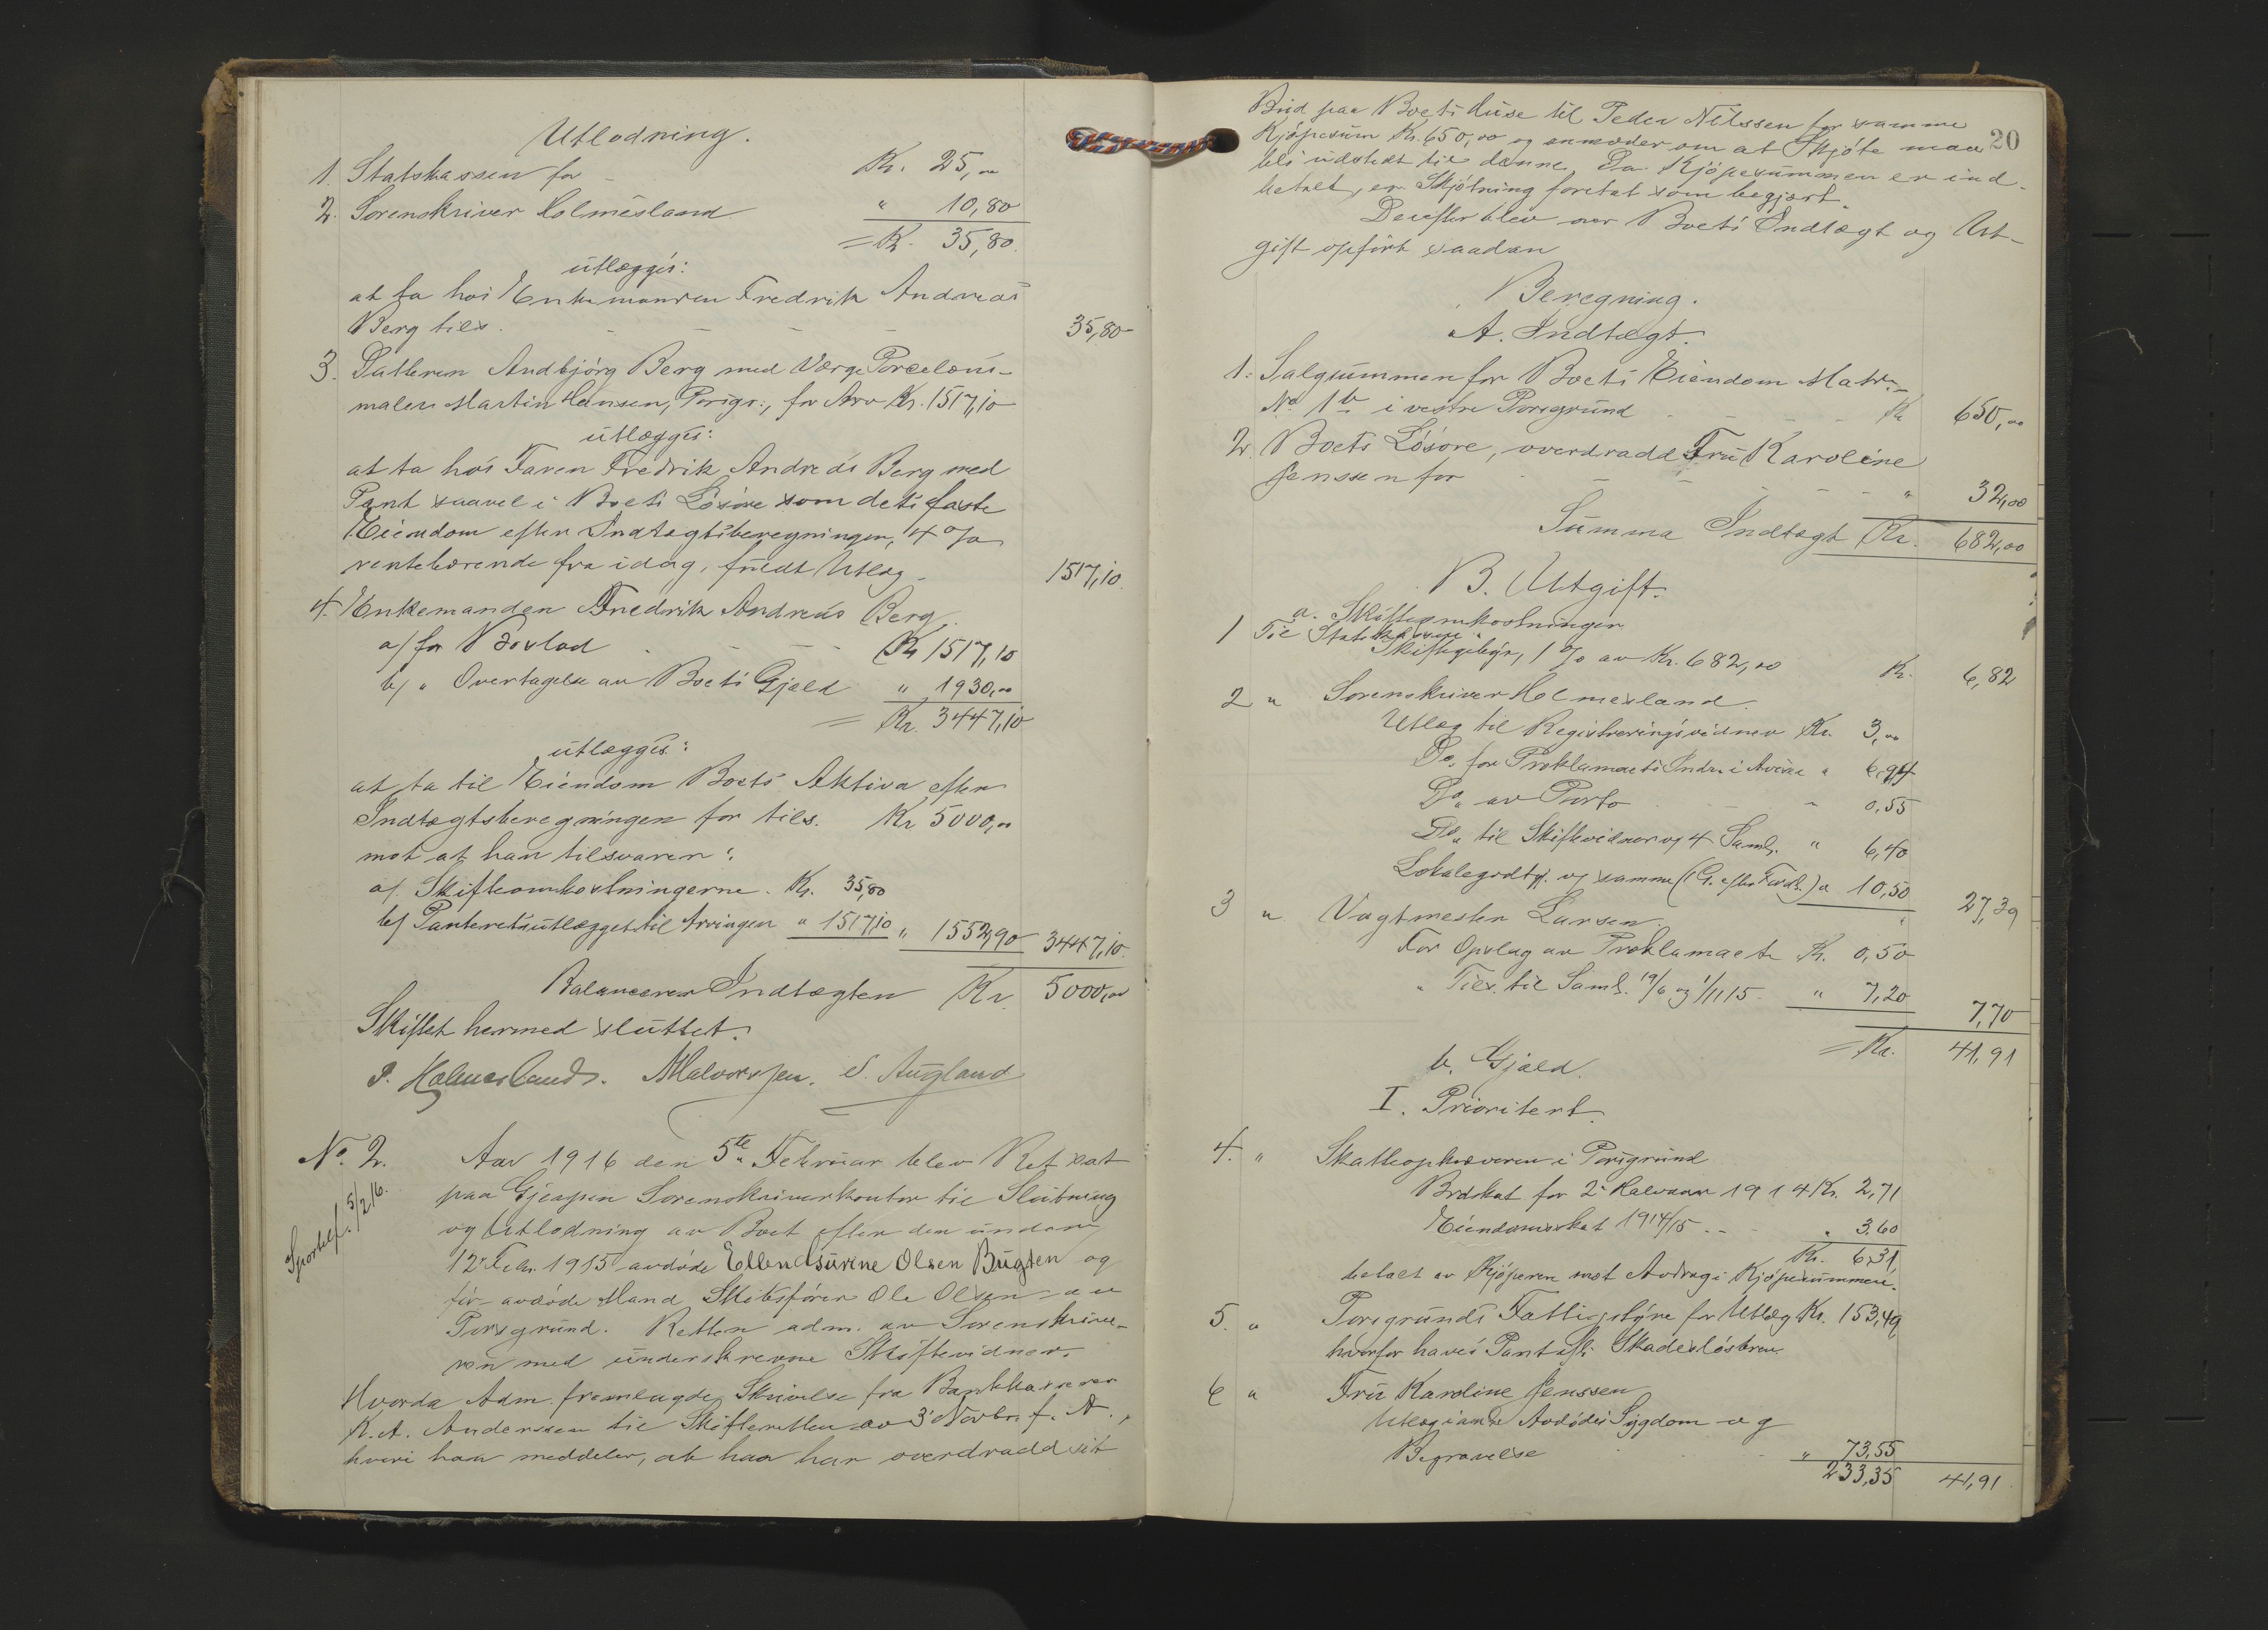 Utlodning.
1. Statskassen for Kr. 25,00
2. Sorenskriver Holmesland " 10,80
= Kr. 35,80.
utlægges:
at ta hos Enkemanden Fredrik Andreas
Berg tils. 35,80
3. Datteren Andbjörg Berg med Værge Porcelæns-
maler Martin Hansen, Porsgr., for Arv Kr. 1517,10
utlægges:
at ta hos Faren Fredrik Andreas Berg med
Pant saavel i Boets Lösöre som dets faste
Eiendom efter Indtægtsberegningen, 4 %
rentebærende fra idag, fuldt Utlæg 1517,10.
4. Enkemanden Fredrik Andreas Berg,
a/ for Boslod Kr 1517,10
b/ " Overtagelse av Boets Gjæld " 1930,00
= Kr. 3447,10
utlægges:
at ta til Eiendom Boets Aktiva efter
Indtægtsberegningen for tils. Kr 5000,00
mot at han tilsvarer:
a/ Skifteomkostningerne. Kr. 35,80
b/ Panteretsutlægget til Arvingen " 1517,10 " 1552,90 3447,10.
Balancerer Indtægten Kr. 5000,00
Skiftet hermed sluttet.
P. Holmesland. Halvorsen. S. Augland
No. 2. Aar 1916 den 5te Februar blev Ret sat
paa Gjerpen Sorenskriverkontor til Slutning
Sportelf. 5/2 16.
og Utlodning av Boet efter den under
12. Febr. 1915 avdöde Ellen Surine Olsen Bugten og
för avdöde Mand Skibsförer Ole Olsen av
Porsgrund. Retten adm. av Sorenskrive-
ren med underskrevne Skiftevidner.
Hvorda Adm. fremlagde Skrivelse fra Bankkasserer
K. A. Anderssen til Skifteretten av 3 Novbr. f. A.,
hvori han meddeler, at han har overdradd sit
20
Bud paa Boets Huse til Peder Nilssen for samme
Kjöpesum Kr. 650,00 og anmoder om at Skjöte maa
bli udstedt til denne. Da Kjöpesummen er ind-
betalt, er Skjötning foretat som begjært.
Derefter blev over Boets Indtægt og Ut-
gift opfört saadan
Beregning.
A. Indtægt.
1. Salgsummen for Boets Eiendom Matr.-
No 1b i vestre Porsgrund Kr 650,00
2. Boets Lösöre, overdradd Fru Karoline
Jenssen for " 32,00
Summa Indtægt Kr. 682,00
B. Utgift.
a. Skifteomkostninger
1 Til Statskassen
Skiftegebyr, 1 % av Kr. 682,00 Kr. 6,82
2 " Sorenskriver Holmesland.
Utlæg til Registreringsvidner Kr. 3,00
Do. for Proklamaets Indr. i Aviser " 6,94
Do. av Porto " 0,55
Do. til Skiftevidner og 4 Saml. " 6,40
Lokalegodtg. og samme (1 G. efter Fordl.) " 10,50 " 27,39
3 " Vagtmester Larsen
For Opslag av Proklamaet Kr. 0,50
" Tils. til Saml. 19/6 og 1/11 15. " 7,20 7,70
= Kr. 41,91
b. Gjæld.
I. Prioritert.
4. " Skatteopkræveren i Porsgrund
Brdskat for 2. Halvaar 1914 Kr. 2,71
Eiendomsskat 1914/15 " 3.60
Kr. 6,31
betalt av Kjöperen mot Avdrag i Kjöpesummen.
5. " Porsgrunds Fattigstyre for Utlæg Kr. 153,49
hvorfor haves Pant efter Skadeslösbrev
6 " Fru Karoline Jenssen
Utlæg i anl. Avdödes Sygdom og
Begravelse " 73,55
233,35 41,91